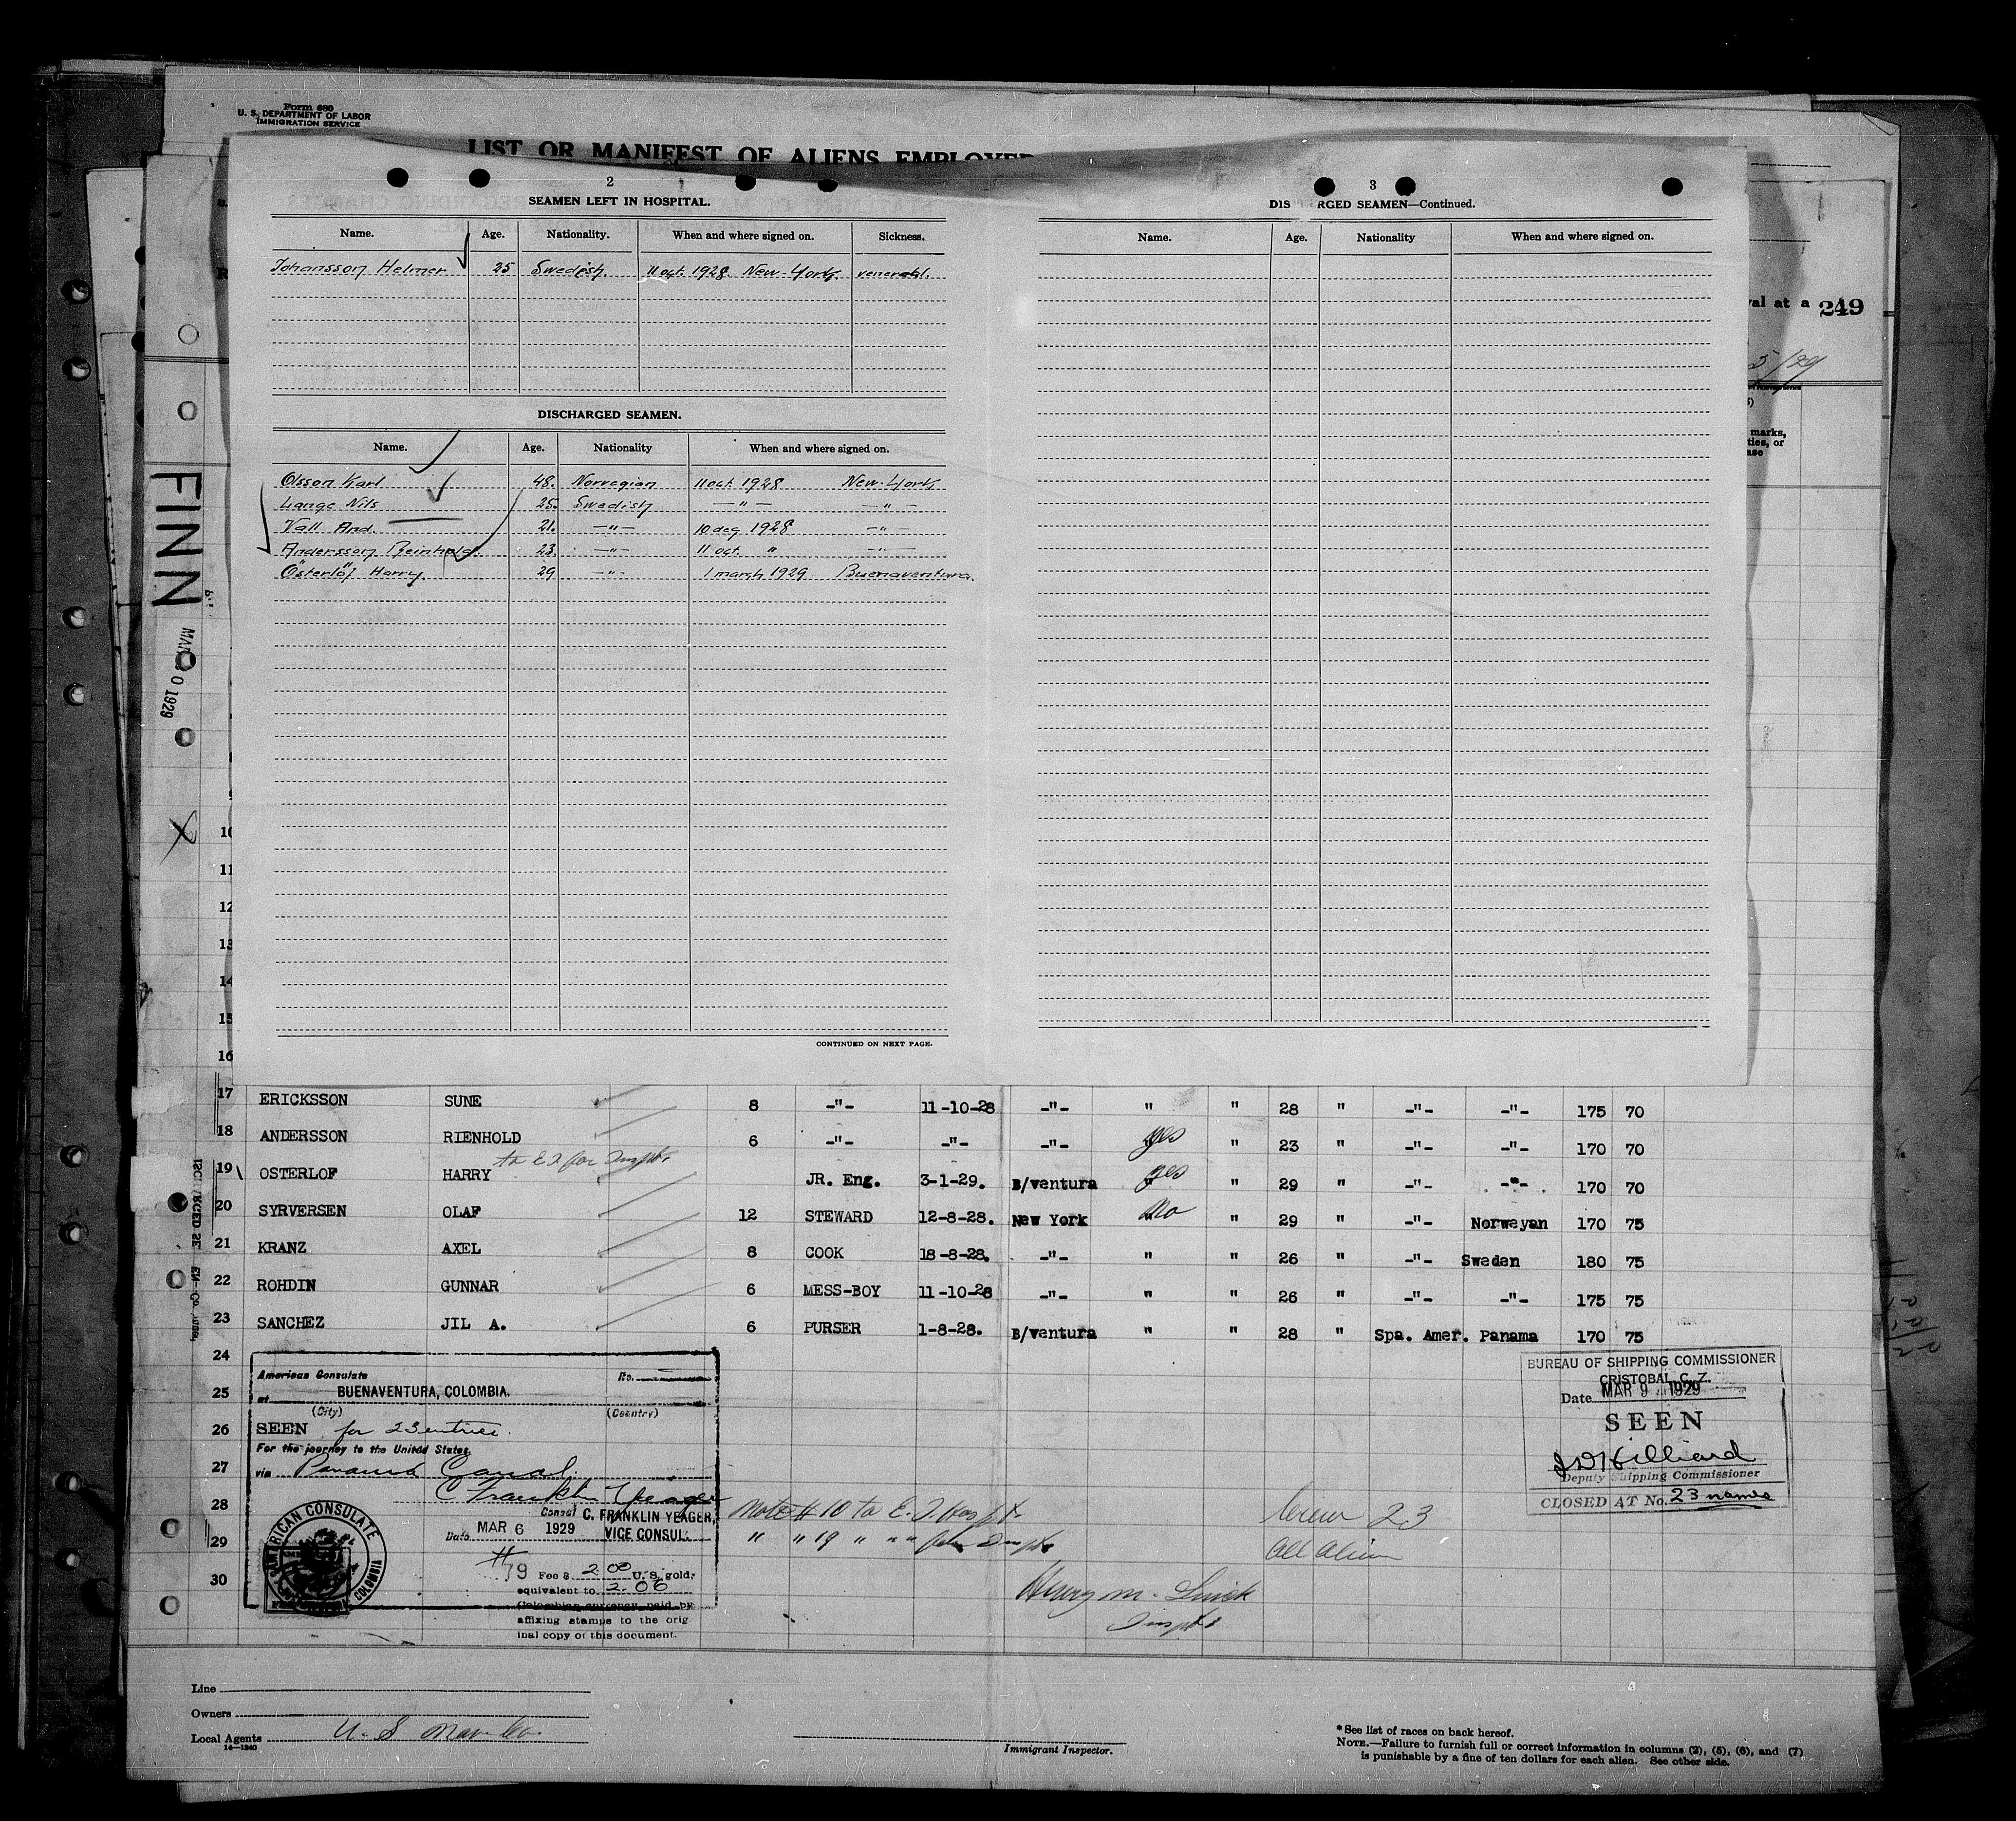 Form 680
U. S. DEPARTMENT OF LABOR
IMMIGRATION SERVICE
LIST OR MANIFEST OF ALIENS EMPLOYED
2
SEAMEN LEFT IN HOSPITAL.
Name. Age. Nationality. When and where signed on. Sickness.
Johansson Helmer 25 Swedish. 11 oct. 1928. New-York.
DISCHARGED SEAMEN.
Name. Age. Nationality When and where signed on.
Olsson Karl 48. Norvegian 11 oct. 1928 New-York
Lange Nils 25. Swedish —"— —"—
Vall And. 21. —"— 10 deg 1928 —"—
Andersson Reinhold. 23. —"— 11 oct. " —"—
Österlöf Harry. 29 —"— 1 march 1929 Buenaventura.
CONTINUED ON NEXT PAGE.
3
DIS RGED SEAMEN—Continued.
Name. Age. Nationality When and where signed on.
val at a 249
5/29
marks,
ties, or
ase
FINN
0 1929
X
10
11
12
13
14
15
16
17 ERICKSSON SUNE 8 -"- 11-10-28 -"- " " 28 " -"- -"- 175 70
18 ANDERSSON RIENHOLD 6 -"- -"- -"- yes " 23 " -"- -"- 170 70
to E I for Inspt.
19 OSTERLOF HARRY JR. Eng. 3-1-29. B/ventura yes " 29 " -"- -"- 170 70
20 SYRVERSEN OLAF 12 STEWARD 12-8-28. New York No " 29 " -"- Norweyan 170 75
21 KRANZ AXEL 8 COOK 18-8-28. -"- " " 26 " -"- Sweden 180 75
22 ROHDIN GUNNAR 6 MESS-BOY 11-10-28 -"- " " 26 " -"- -"- 175 75
23 SANCHEZ JIL A. 6 PURSER 1-8-28. B/ventura " " 28 " Spa. Amer. Panama 170 75
24
25
26
27
28
29
30
American Consulate No.
at BUENAVENTURA, COLOMBIA.
(City) (Country)
SEEN for 23 entries.
For the journey to the United States.
via Panama Canal.
C Franklin Yeager
Consul C. FRANKLIN YEAGER,
Date MAR 6 1929 VICE CONSUL.
AMERICAN CONSULATE
COLOMBIA
79 Fee $ 2.00 U.S. gold;
equivalent to 2.06
Colombian currency paid by
affixing stamps to the orig
inal copy of this document.
Note # 10 to E. I. Hospt.
" " 19 " " " for Inspt.
Crew 23
All Alien
Inspt.
BUREAU OF SHIPPING COMMISSIONER
CRISTOBAL, C. Z.
Date MAR 9 1929
SEEN
Hilliard
Deputy Shipping Commissioner
CLOSED AT No. 23 names
Line
Owners
Local Agents U. S Nav. Co.
14—1240
Immigrant Inspector.
*See list of races on back hereof.
NOTE.—Failure to furnish full or correct information in columns (2), (5), (6), and (7)
is punishable by a fine of ten dollars for each alien. See other side.